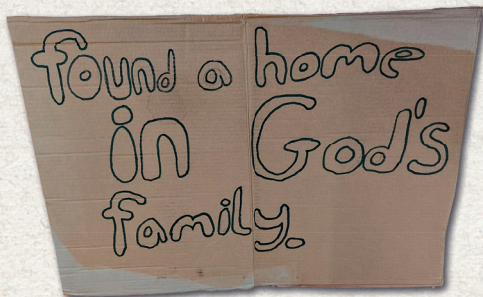 found a home
in God's
family.